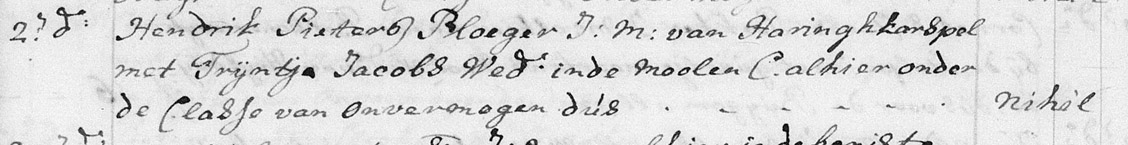 2.' d:' Hendrik Pietersz Ploeger J: M: van Haringhkarspel
met Trÿntje Jacobs Wed.' inde moolen C. alhier onder
de Classe van onvermogen dus - - - - - nihil